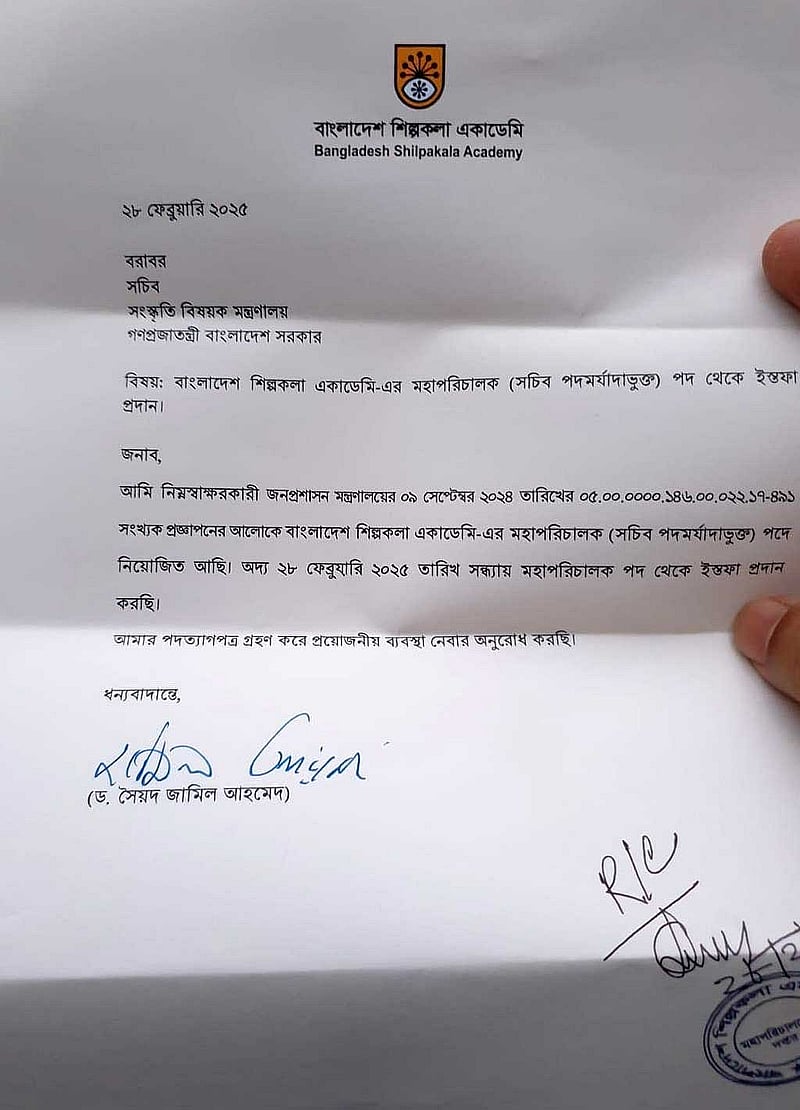 বাংলাদেশ শিল্পকলা একাডেমি
Bangladesh Shilpakala Academy
২৮ ফেব্রুয়ারি ২০২৫
বরাবর
সচিব
সংস্কৃতি বিষয়ক মন্ত্রণালয়
গণপ্রজাতন্ত্রী বাংলাদেশ সরকার
বিষয়: বাংলাদেশ শিল্পকলা একাডেমি-এর মহাপরিচালক (সচিব পদমর্যাদাভুক্ত) পদ থেকে ইস্তফা
প্রদান।
জনাব,
আমি নিম্নস্বাক্ষরকারী জনপ্রশাসন মন্ত্রণালয়ের ০৯ সেপ্টেম্বর ২০২৪ তারিখের ০৫.০০.০০০০.১৪৬.০০.০২২.১৭-৪৯১
সংখ্যক প্রজ্ঞাপনের আলোকে বাংলাদেশ শিল্পকলা একাডেমি-এর মহাপরিচালক (সচিব পদমর্যাদাভুক্ত) পদে
নিয়োজিত আছি। অদ্য ২৮ ফেব্রুয়ারি ২০২৫ তারিখ সন্ধ্যায় মহাপরিচালক পদ থেকে ইস্তফা প্রদান
করছি।
আমার পদত্যাগপত্র গ্রহণ করে প্রয়োজনীয় ব্যবস্থা নেবার অনুরোধ করছি।
ধন্যবাদান্তে,
(ড. সৈয়দ জামিল আহমেদ)
R/C
শিল্পকলা